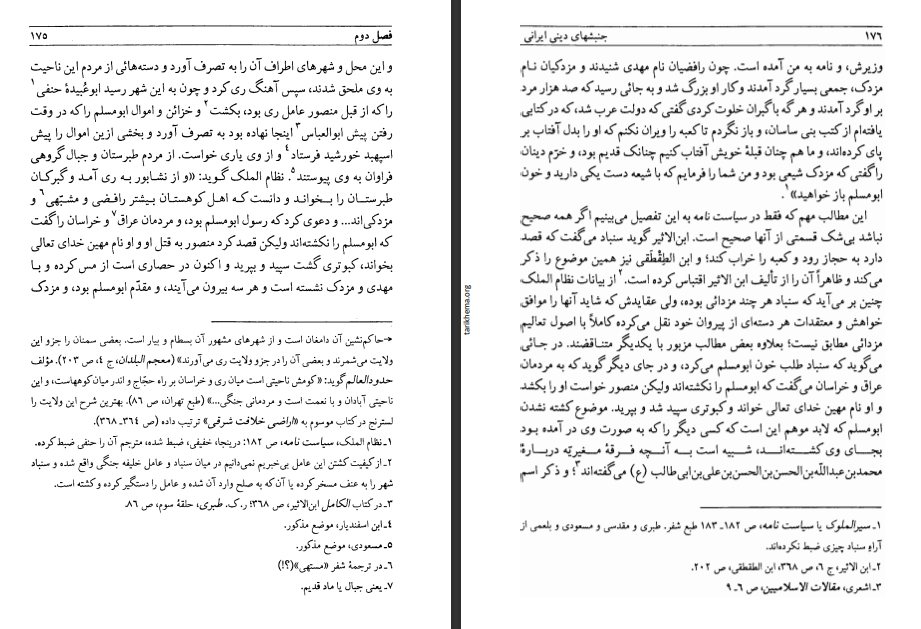 فصل دوم ۱۷۵
و این محل و شهرهای اطراف آن را به تصرف آورد و دسته‌هائی از مردم این ناحیت
به وی ملحق شدند، سپس آهنگ ری کرد و چون به این شهر رسید ابوعُبیدهٔ حنفی۱
را که از قبل منصور عامل ری بود، بکشت۲ و خزائن و اموال ابومسلم را که در وقت
رفتن پیش ابوالعباس۳ اینجا نهاده بود به تصرف آورد و بخشی ازین اموال را پیش
اسپهبد خورشید فرستاد۴ و از وی یاری خواست. از مردم طبرستان و جبال گروهی
فراوان به وی پیوستند۵. نظام الملک گوید: «و از نشابور به ری آمد و گبرکان
طبرستان را بخواند و دانست که اهل کوهستان بیشتر رافضی و مشبّهی۶ و
مزدکی‌اند... و دعوی کرد که رسول ابومسلم بود، و مردمان عراق۷ و خراسان را گفت
که ابومسلم را نکشته‌اند ولیکن قصد کرد منصور به قتل او و او نام مهین خدای تعالی
بخواند، کبوتری گشت سپید و بپرید و اکنون در حصاری است از مس کرده و با
مهدی و مزدک نشسته است و هر سه بیرون می‌آیند، و مقدّم ابومسلم بود، و مزدک
→حاکم‌نشین آن دامغان است و از شهرهای مشهور آن بسطام و بیار است. بعضی سمنان را جزو این
ولایت می‌شمرند و بعضی آن را در جزو ولایت ری می‌آورند» (معجم البلدان، ج ٤، ص ۲۰۳). مؤلف
حدودالعالم گوید: «کومش ناحیتی است میان ری و خراسان بر راه حجّاج و اندر میان کوههاست، و این
ناحیتی آبادان و با نعمت است و مردمانی جنگی...» (طبع تهران، ص ۸٦). بهترین شرح این ولایت را
لسترنج در کتاب موسوم به «اراضی خلافت شرقی» ترتیب داده (ص ۳٦٤ـ ۳٦۸).
۱ـ نظام الملک، سیاست نامه، ص ۱۸۲: درینجا، خفیفی، ضبط شده، مترجم آن را حنفی ضبط کرده.
۲ـ از کیفیت کشتن این عامل بی‌خبریم نمی‌دانیم در میان سنباد و عامل خلیفه جنگی واقع شده و سنباد
شهر را به عنف مسخر کرده یا آن‌که به صلح وارد آن شده و عامل را دستگیر کرده و کشته است.
۳ـ در کتاب الکامل ابن‌الاثیر، ص ۳٦۸؛ ر.ک. طبری، حلقهٔ سوم، ص ۸٦.
٤ـ ابن اسفندیار، موضع مذکور.
٥ـ مسعودی، موضع مذکور.
٦ـ در ترجمهٔ شفر «مستهی»(؟!)
۷ـ یعنی جبال یا ماد قدیم.
tarikhema.org
۱۷٦ جنبشهای دینی ایرانی
وزیرش، و نامه به من آمده است. چون رافضیان نام مهدی شنیدند و مزدکیان نام
مزدک، جمعی بسیار گرد آمدند و کار او بزرگ شد و به جائی رسید که صد هزار مرد
بر او گرد آمدند و هر گه با گبران خلوت کردی گفتی که دولت عرب شد، که در کتابی
یافته‌ام از کتب بنی ساسان، و باز نگردم تا کعبه را ویران نکنم که او را بدل آفتاب بر
پای کرده‌اند، و ما هم چنان قبلهٔ خویش آفتاب کنیم چنانک قدیم بود، و خرّم دینان
را گفتی که مزدک شیعی بود و من شما را فرمایم که با شیعه دست یکی دارید و خون
ابومسلم باز خواهید»۱.
این مطالب مهم که فقط در سیاست نامه به این تفصیل می‌بینیم اگر همه صحیح
نباشد بی‌شک قسمتی از آنها صحیح است. ابن‌الاثیر گوید سنباد می‌گفت که قصد
دارد به حجاز رود و کعبه را خراب کند؛ و ابن الطِقْطَقی نیز همین موضوع را ذکر
می‌کند و ظاهراً آن را از تألیف ابن الاثیر اقتباس کرده است.۲ از بیانات نظام الملک
چنین بر می‌آید که سنباد هر چند مزدائی بوده، ولی عقایدش که شاید آنها را موافق
خواهش و معتقدات هر دسته‌ای از پیروان خود نقل می‌کرده کاملاً با اصول تعالیم
مزدائی مطابق نیست؛ بعلاوه بعض مطالب مزبور با یکدیگر متناقضند. در جائی
می‌گوید که سنباد طلب خون ابومسلم می‌کرد، و در جای دیگر گوید که به مردمان
عراق و خراسان می‌گفت که ابومسلم را نکشته‌اند ولیکن منصور خواست او را بکشد
و او نام مهین خدای تعالی خواند و کبوتری سپید شد و بپرید. موضوع کشته نشدن
ابومسلم که لابد موهم این است که کسی دیگر را که به صورت وی در آمده بود
بجای وی کشته‌اند، شبیه است به آنچه فرقهٔ مغیریّه دربارهٔ
محمدبن‌عبداللّه‌بن‌الحسن‌بن‌الحسن‌بن‌علی‌بن‌ابی‌طالب (ع) می‌گفته‌اند۳؛ و ذکر اسم
۱ـ سیرالملوک یا سیاست نامه، ص ۱۸۲ـ ۱۸۳ طبع شفر. طبری و مقدسی و مسعودی و بلعمی از
آراءِ سنباد چیزی ضبط نکرده‌اند.
۲ـ ابن الاثیر، ج ٦، ص ۳٦۸، ابن الطقطقی، ص ۲۰۲.
۳ـ اشعری، مقالات الاسلامیین، ص ٦ـ ۹